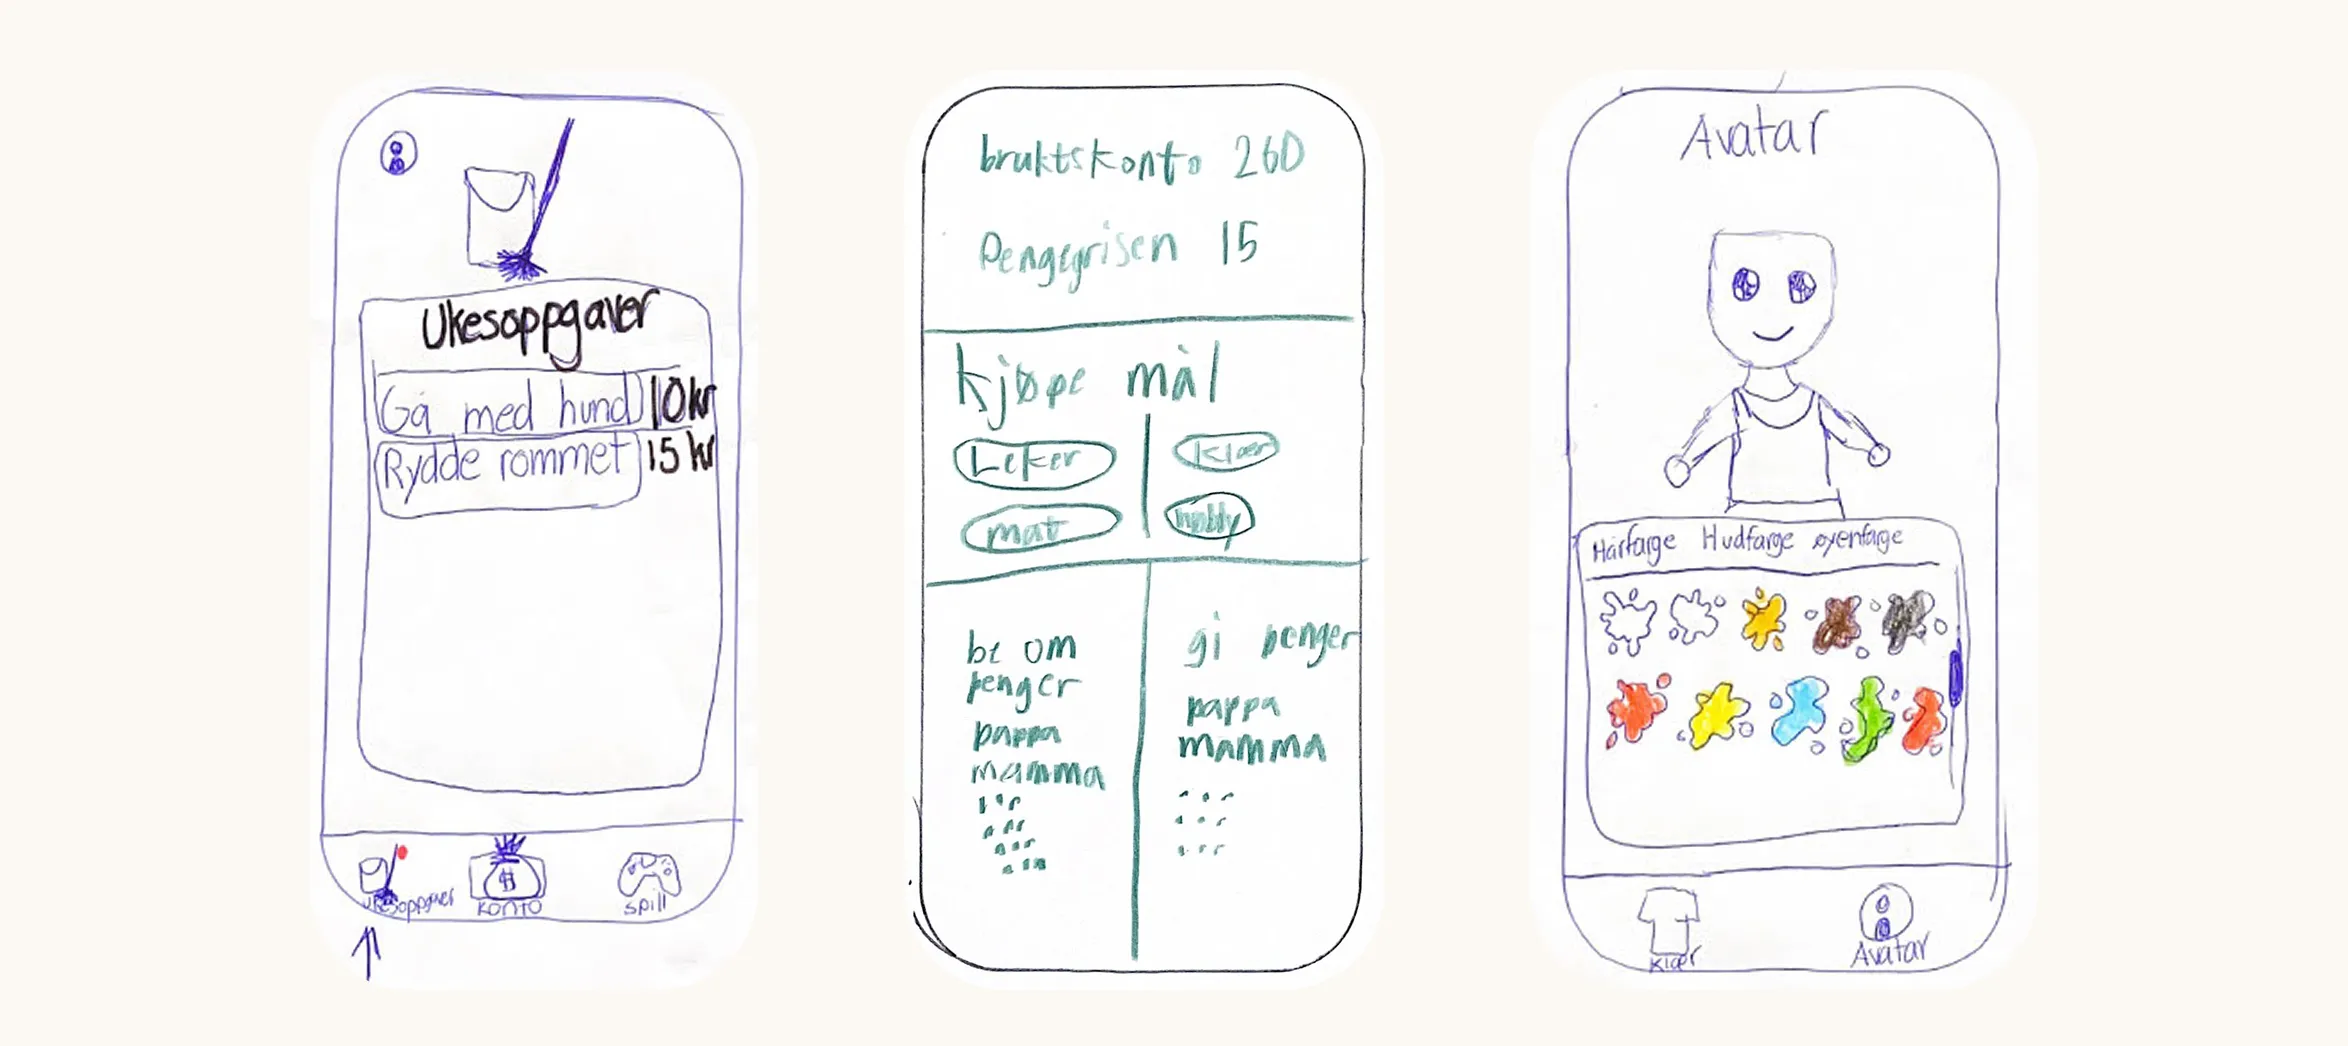 Ukesoppgaver
Gå med hund 10kr
Rydde rommet 15 kr
Ukesoppgaver Konto Spill
bruktskonto 260
Pengegrisen 15
kjøpe mål
Leker klær
mat hobby
be om penger
pappa
mamma
gi penger
pappa
mamma
Avatar
Hårfarge Hudfarge øyenfarge
Klær Avatar